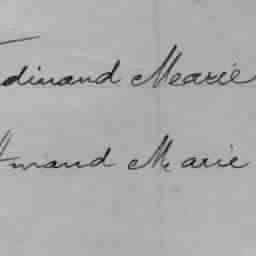 dinand Marie
Amand Marie